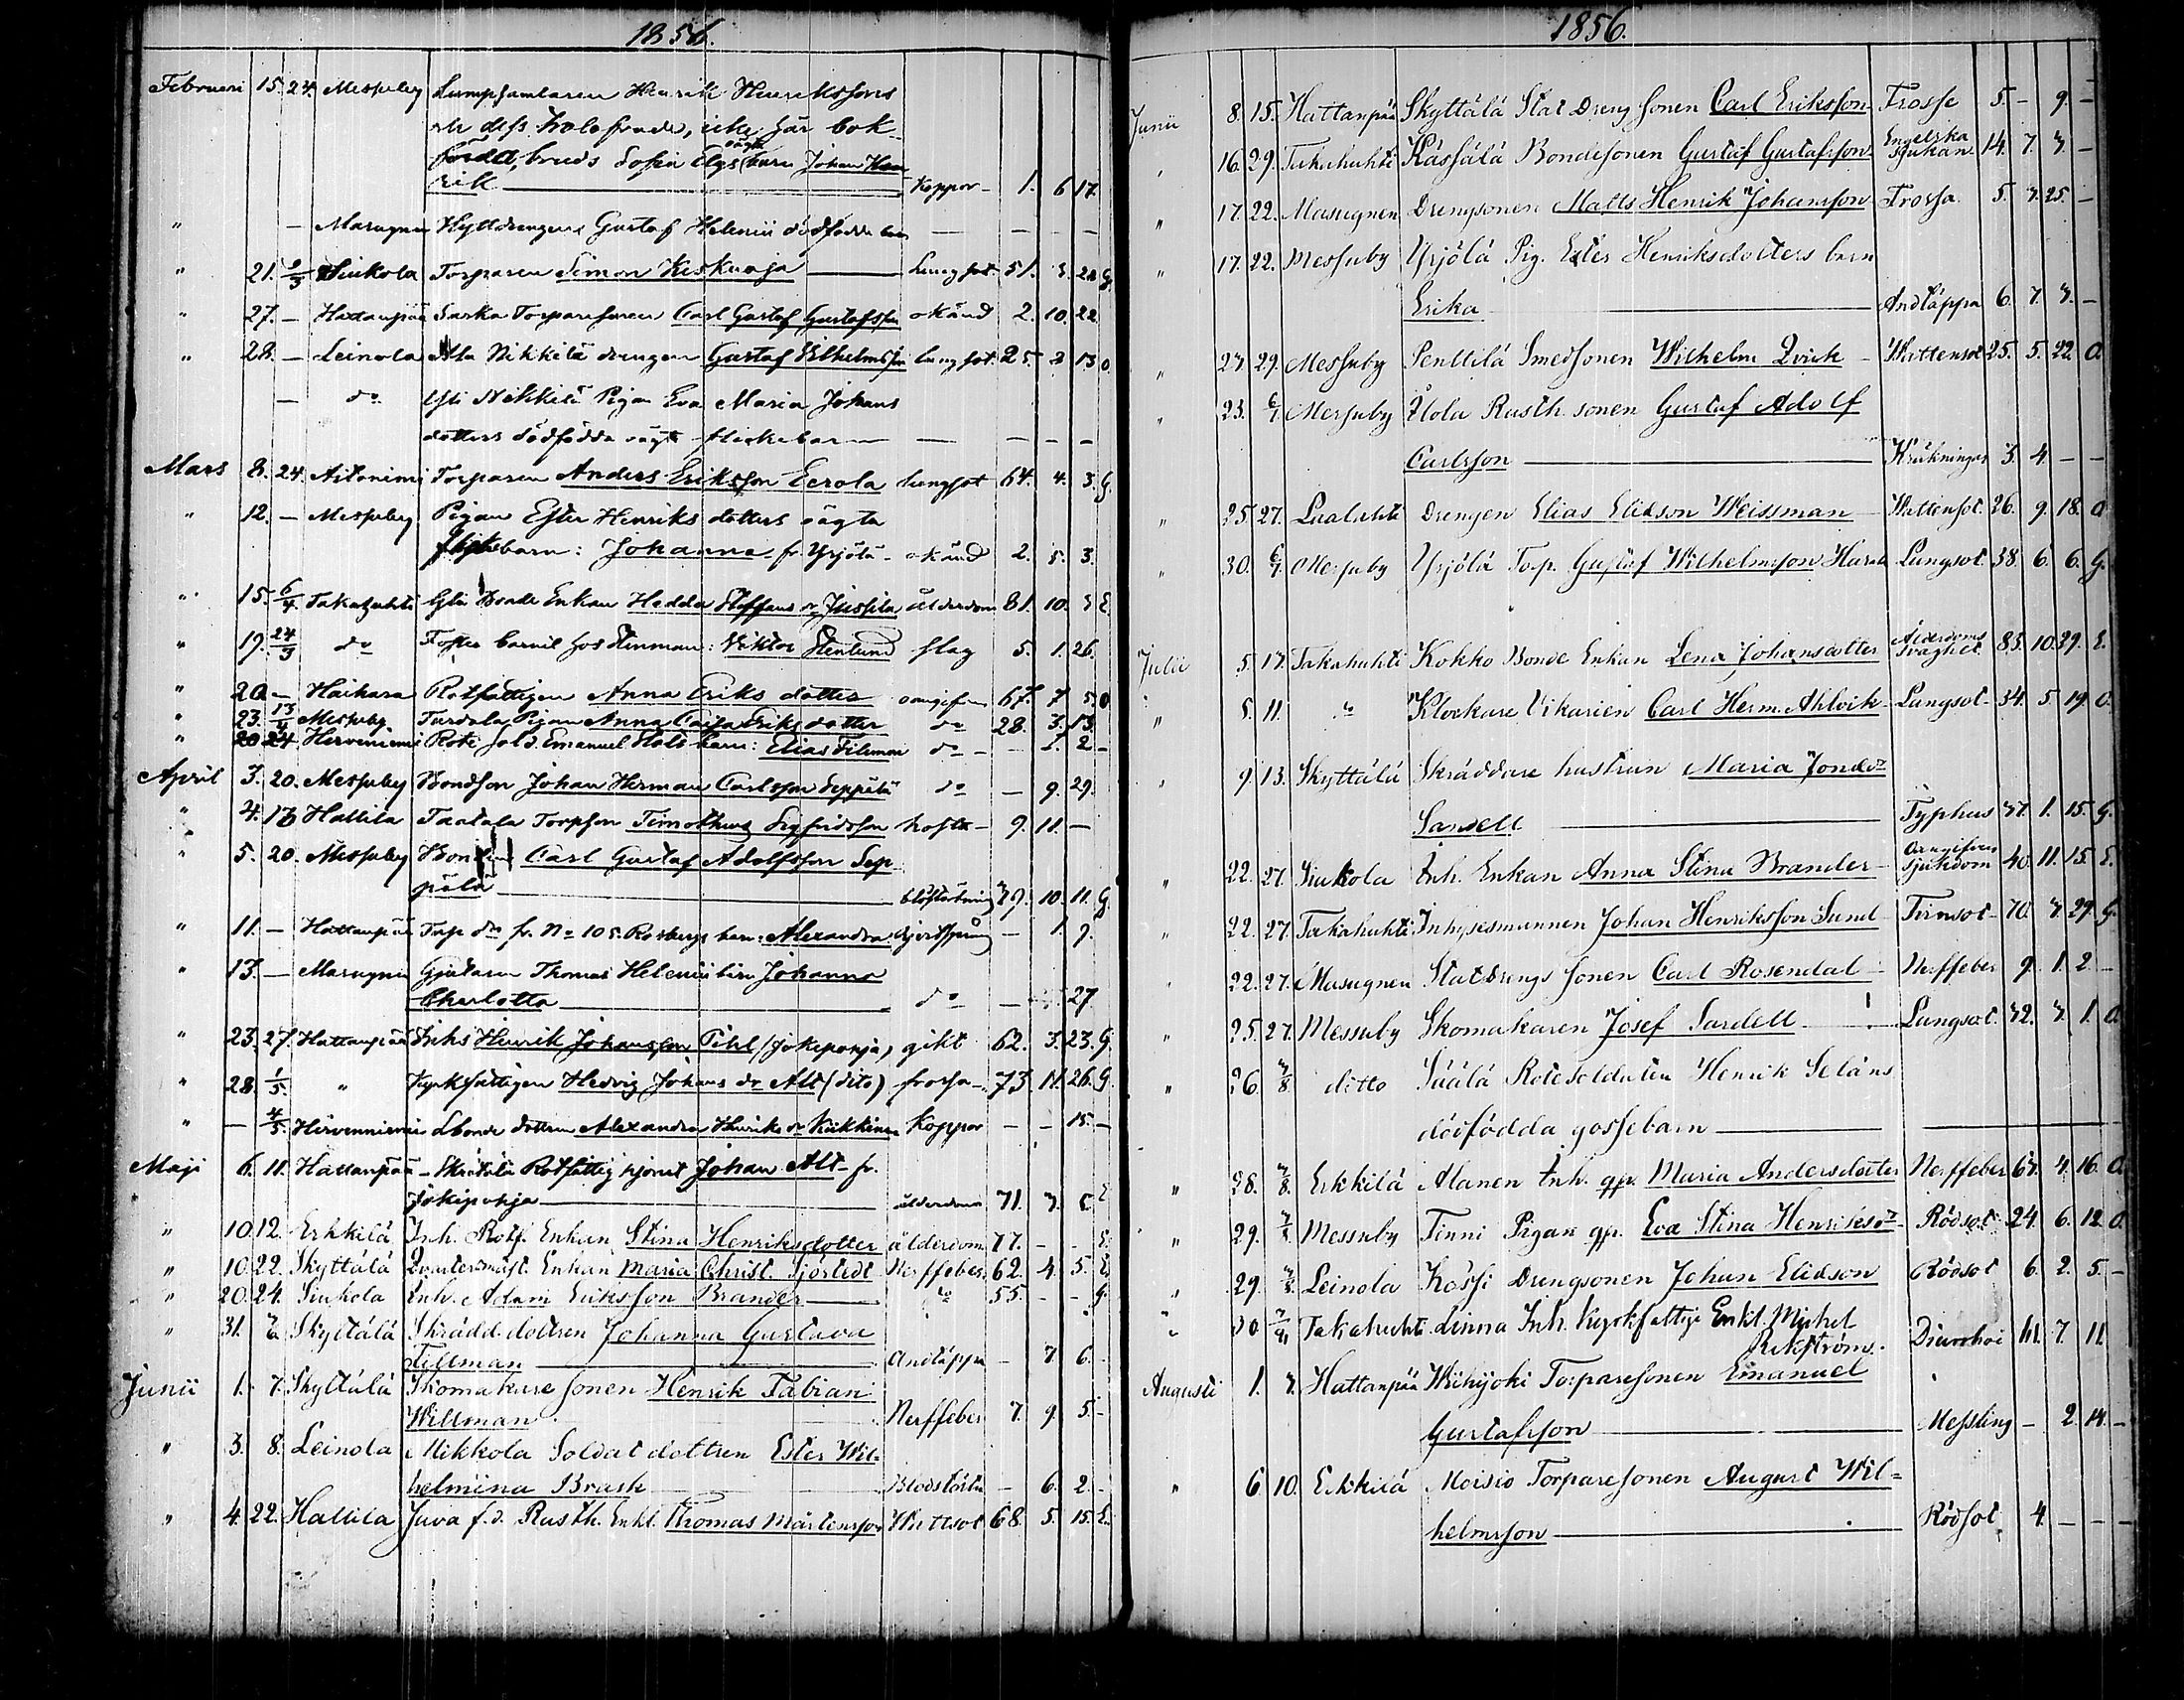 1856.
Februari 15. 24. Messuby Lumpsamlaren Henrik Henrikssons
och dess trolofvade, icke här bok
förda, bruds Sofia Elgs oägta barn Johan Hen
rik Koppor 1. 6 17.
" — Masugnen Hyttdrengens Gustaf Helenii dödfödda barn — — — —
" 21. 2/3 Siukola Torparen Simon Keskuoja Lungsot. 51. 3. 22 G.
" 27. — Hattanpää Sarka Torparesonen Carl Gustaf Gustafsson okänd 2. 10. 22
" 28. — Leinola Ala Nikkilä drengen Gustaf Wilhelmsson lungsot. 25. 2 13 O.
— do Yli Nikkilä Pigan Eva Maria Johans
dotters dödfödda oägta flickebarn — — — —
Mars 8. 24. Aitoniemi Torparen Anders Eriksson Eerola lungsot 64. 4. 3. G.
" 12. — Messuby Pigan Ester Henriks dotters oägta
flickbarn: Johanna fr. Yrjölä okänd 2. 5. 3.
" 15. 6/4 Takahuhti Gla Bonde Enkan Hedda Staffans dr Jussila ålderdom 81. 10. 3 E.
" 19. 24/3 do Foster barnet hos Stenman: Viktor Stenlund slag 5. 1. 26.
" 20. — Haihara Rotfattigen Anna Eriks dotter oangifven 67. 7 5. O
" 23. 13/4 Messuby Turdala Pigan Anna Caisa Eriks dotter do 28. 3. 13.
" 20 24 Hervenniemi Rote sold. Emanuel Stolt barn: Elias Fileman do — 1. 2 —
April 3. 20. Messuby Bondson Johan Herman Carlsson Seppälä do — 9. 29.
" 4. 13 Hallila Taatala Torpson Timotheus Sigfridsson hosta 9. 11. —
" 5. 20. Messuby Bonden Carl Gustaf Adolfsson Sep
pälä blodstörtning 29. 10. 11. G.
" 11. — Hattanpää Torp dr fr. No 105. Rosbergs barn: Alexandra hjertsprång — 1. 9.
" 13. — Masugnen Gjutaren Thomas Helenii barn Johanna
Charlotta do — 27
" 23. 27. Hattanpää Inhs Henrik Johansson Pihl (Jokiponja) gikt 62. 3. 23. G.
" 28. 1/5. " Kyrkfattigen Hedvig Johans dr Alt (dito) frossa 73. 11. 26. G.
" — 4/5. Hervenniemi Lbonde dottren Alexandra Henriks dr Kukkinen Koppor — — 15. —
Maji 6. 11. Hattanpää Skätälä Rotfattig hjonet Johan Alt fr.
Jokipohja ålderdom 71 7. 5. E
" 10 12. Erkkilä Inh. Rotf. Enkan Stina Henriksdotter ålderdom 77. — — E.
" 10. 22. Skyttälä Qvartermäst. Enkan Maria Christ. Sjöstedt Nerffeber. 62. 4. 5. E.
" 20. 24. Siukola Inh. Adam Eriksson Brander do 55. — — G.
" 31. Skyttälä Skrädd. dottren Johanna Gustava
Tillman Andtäppa — 7. 6.
Junii 1. 7. Skyttälä Skomakare sonen Henrik Fabian
Willman Nerffeber 7. 9. 5. -
" 3. 8. Leinola Mikkola Soldat dottren Ester Wil=
helmina Brask Blodstörtn — 6. 2. -
" 4. 22. Hallila Juva f.d. Rusth. Enkl. Thomas Mårtensson Wattsot 68. 5. 15. E.
1856.
Junii 8. 15. Hattanpää Skyttälä Stat Dreng sonen Carl Eriksson Frosse 5. — 9. —
16. 29. Takahuhti Kässälä Bondesonen Gustaf Gustafsson Engelska Sjukan 14. 7. 7. —
" 17. 22. Masugnen Drengsonen Matts Henrik Johansson Frossa 5. 7. 25. —
" 17. 22. Messuby Yrjölä Pig. Ester Henriksdotters barn
Erika Andtäppa 6. 7. 7. —
" 27. 29. Messuby Penttilä Smedsonen Wilhelm Qvick Wattensot 25. 5. 22. O
" 23. 6/7 Messuby Uola Rusth. sonen Gustaf Adolf
Carlsson Kräkningar 3. 4. — —
" 25. 27. Lualahti Drengen Elias Eliasson Weissman Wattensot. 26. 9. 18. O
" 30. 6/7 Messuby Yrjölä Torp. Gustaf Wilhelmsson Harala Lungsot 38. 6. 6. G.
Julii 5. 17. Takahuhti Kokko Bonde Enkan Lena Johansdotter Ålderdoms svaghet 83. 10. 29. E.
" 5. 11. " Klockare Vikarien Carl Herm. Ahlvik Lungsot 34. 5. 19. O.
" 9. 13. Skyttälä Skräddare hustrun Maria Jonasdr
Sandell Typhus 47. 1. 15. G.
" 22. 27. Siukola Inh. Enkan Anna Stina Brander Oangifven Sjukdom 40. 11. 15. E.
" 22. 27. Takahuhti Inhysesmannen Johan Henriksson Sund Tirnsot 70. 7. 29. G.
22. 27. Masugnen Statdrengs sonen Carl Rosendal Nerffeber 9. 1. 2. —
" 25. 27. Messuby Skomakaren Josef Sandell Lungsot. 72. 7. 1. O.
" 26. 7/8. ditto Säälä Rotesoldaten Henrik Seläns
dödfödda gossebarn
" 28. 7/8. Erkkilä Alanen Inh. qp. Maria Andersdotter Nerffeber 67. 4. 16. O
" 29. Messuby Tenni Pigan qp. Eva Stina Henriksdr Rödsot 24. 6. 12. O.
" 29. Leinola Kössi Drengsonen Johan Eliason Rödsot 6. 2. 5. —
" 30. Takahuhti Linna Inh. Kyrkfattige Enkl. Michel
Rikström Diarrhoé 61. 7. 11.
Augusti 1. 7. Hattanpää Wihijoki Torparesonen Emanuel
Gustafsson Messling — 2. 14. —
" 6 10. Erkkilä Moisio Torparesonen August Wil=
helmsson Rödsot 4. — — —